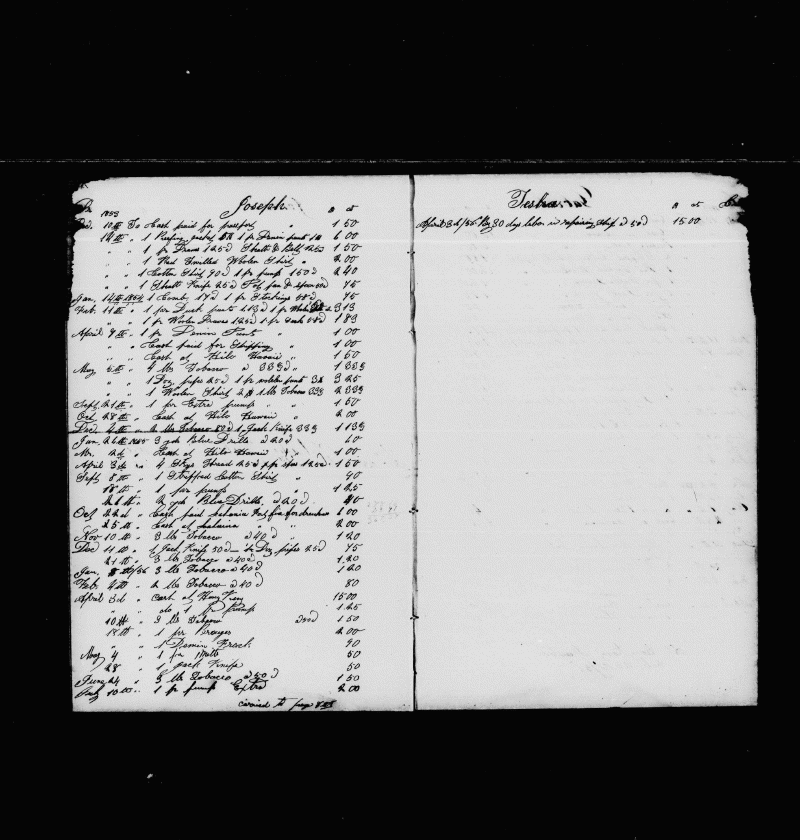 Dr 1853 Joseph $ ct
Dec. 10th To Cash paid for passport 1 50
14th " 1 1 pr Denim pants 6 00
" " 1 pr Drawers 125 Sheath & Belt 25 1 50
" " 1 Red Woolen Shirt " 2 00
" " 1 Cotton Shirt 90 1 pr pumps 150 2 40
" " 1 Sheath Knife 25 Pot, pan & spoon 50 75
Jan. 14th 1854 1 Comb 17 1 pr Stockings 58 75
Feb. 11th " 1 pr Duck pants 1 pr 313
" " 1 pr Woolen Drawers 125 1 pr 58 1 83
April 8th " 1 pr Denim Pants " 1 00
" " Cash paid for Shipping " 1 00
" " Cash at Hilo Hawaii " 1 50
May 5th " 4 lbs Tobacco 1 33
" " 1 Doz pipes 25 1 pr woolen pants 3 3 25
" " 1 Woolen Shirt 2 1 lb Tobacco 33 2 33
Sept. 21st " 1 pr Extra pumps " 1 50
Oct. 28th " Cash at Hilo Hawaii " 2 00
Dec 4th " 2 lbs Tobacco 80 1 Jack Knife 33 1 13
Jan. 26th 1855 3 yds Blue Drills 20 60
Mr. 2d " Cash at Hilo Hawaii " 1 00
April 3d " 4 Skns Thread 25 1 50
Sept. 8th " 1 Cotton Shirt " 90
18th " 1 pair pumps " 1 25
26th " 2 yds Blue Drills, 20 40
Oct 22d " Cash paid Lahaina for drunkenness 6 00
25th " Cash at Lahaina " 2 00
Nov 10th " 3 lbs Tobacco 40 1 20
Dec 11th " 1 Jack Knife 50 ½ Doz pipes 25 75
21st " 3 lbs Tobacco 40 1 20
Jan. 8th/56 3 lbs Tobacco 40 1 20
Feb. 4th " 2 lbs Tobacco 40 80
April 3d " Cash at Hong Kong 15 00
" " do 1 pr Pumps 1 25
10th " 3 lbs Tobacco 50 1 50
18th " 1 pr 2 00
" " 1 Denim Frock 90
May 4 " 1 pr 50
28 " 1 Jack Knife 50
June 24 " 3 lbs Tobacco 50 1 50
July 10th " 1 pr pumps Extra 2 00
carried to page
$ ct Cr
April 3d/56 By 30 days labor in repairing Ship 50 15 00